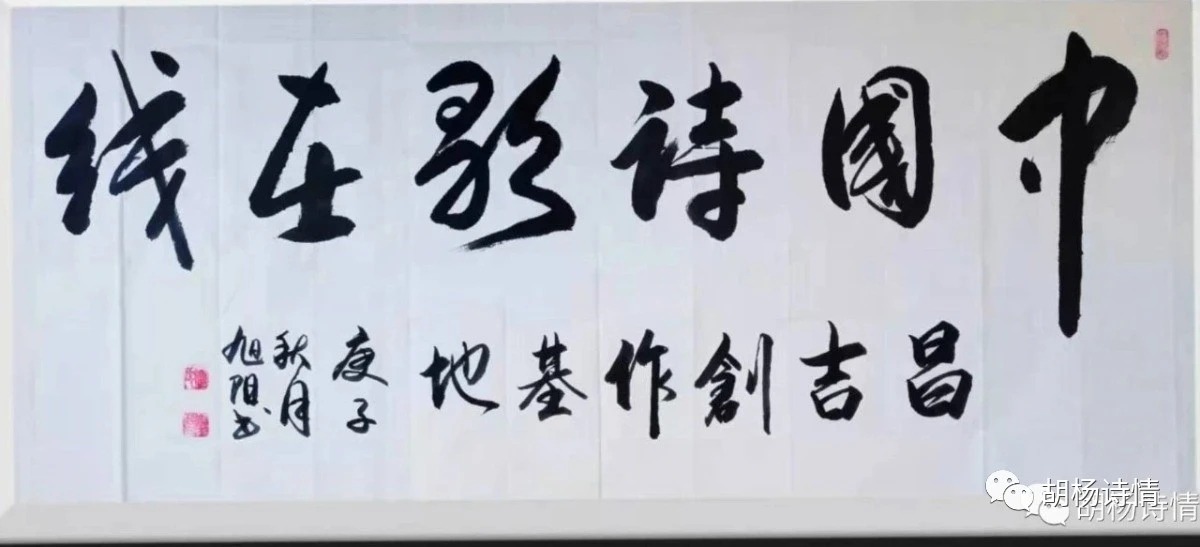 中國诗歌在线
昌吉創作基地
庚子
秋月
旭阳书
胡杨诗情
胡杨诗情